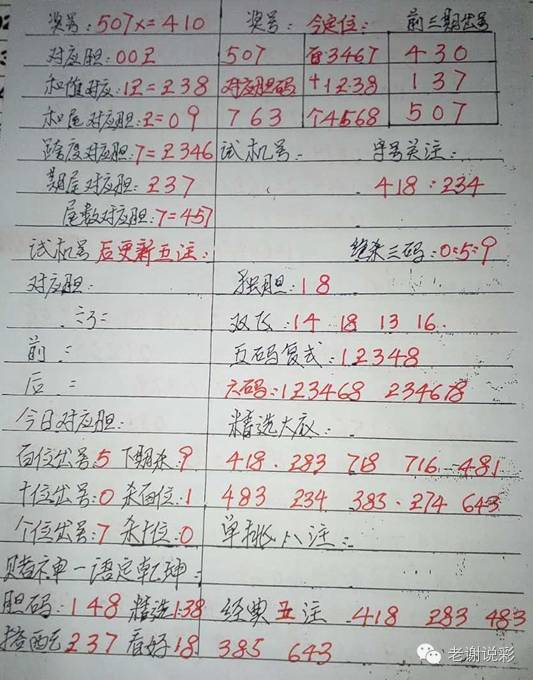 奖号:507x=410 奖号: 今定位: 前三期出号
对应胆:00卫 507 百3467 430
和值对应:12=238 对应胆码 十1238 137
和尾对应胆:2=09 763 个4568 507
跨度对应胆:7=2346 试机号: 字号关注:
期尾对应胆:237 418:234
尾数对应胆:7=457
试机号后更新五注: 绝杀三码:0:5:9
对应胆: 独胆:18
双飞:14 18 13 16
前: 五码复式:12348
后: 六码:123468 234678
今日对应胆: 精选大底:
百位出号:5 下期杀:9 418. 283 718 716 481
十位出号:0 杀百位:1 483 234 383. 274 643
个位出号:7 杀十位:0 单挑八注:
赌神一语定乾坤:
胆码:148 精选138 经典五注 418 283 483
搭配237 看好18 385 643
老谢说彩